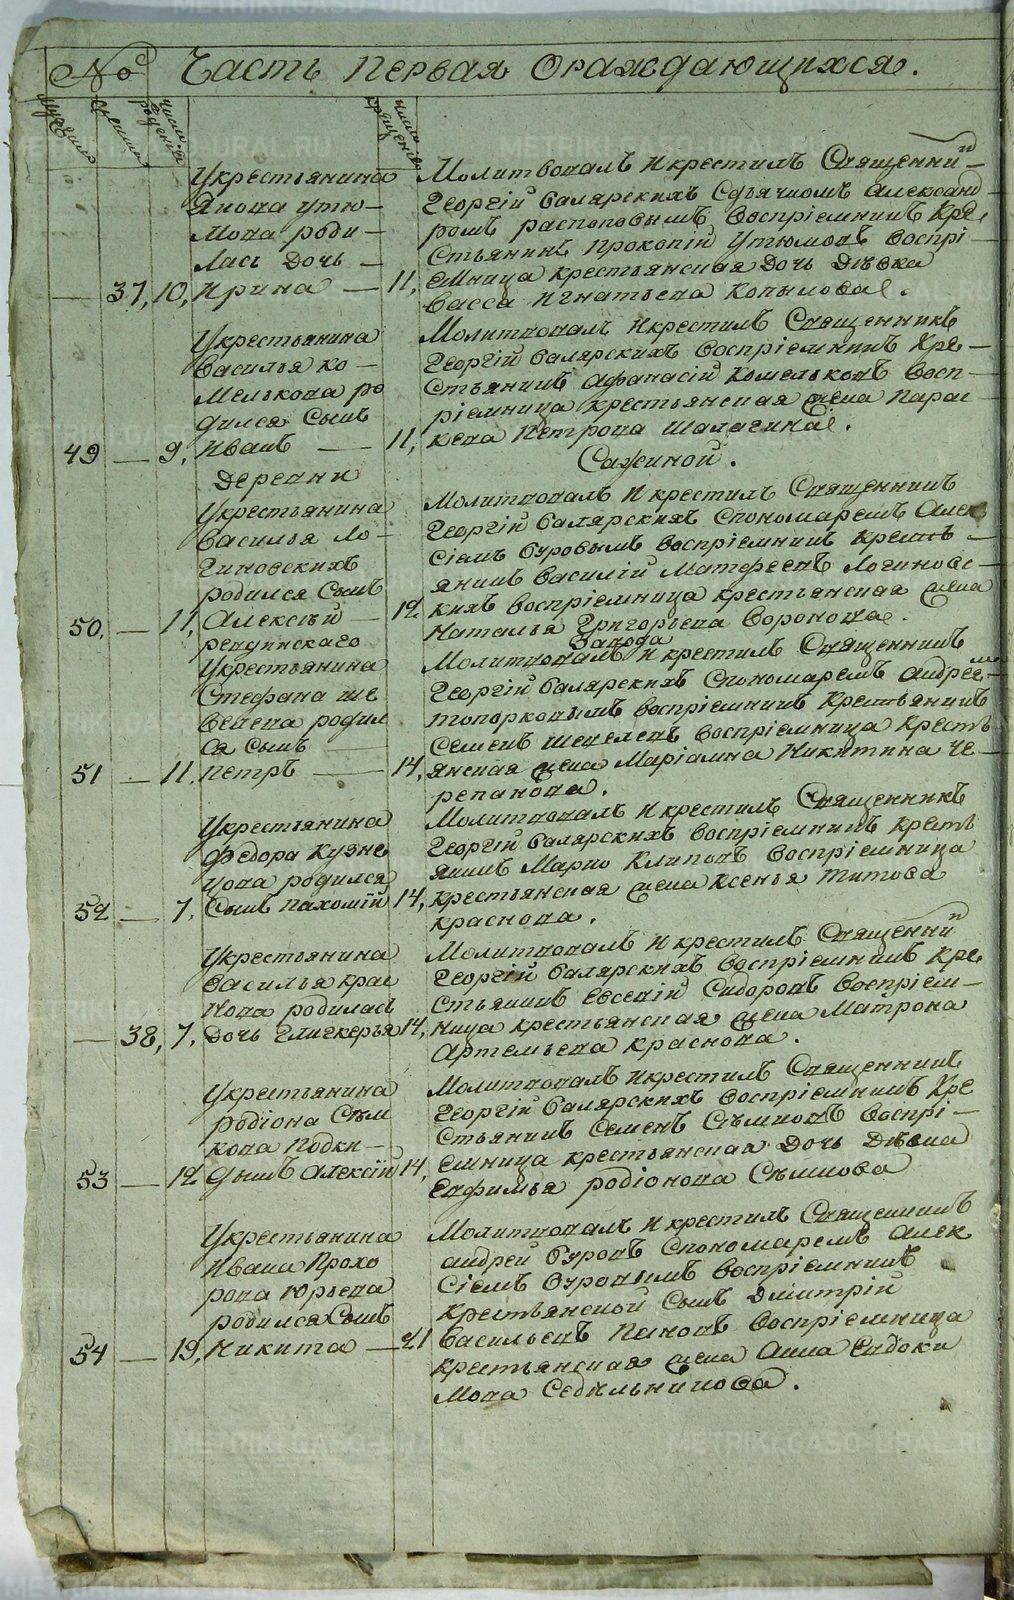 № Часть Первая Ораждающихся.
Мужеска
Женска
число рождениа
число крещение
Укрестьянина
Якова Утю-
мова роди-
лась Дочь -
37, 10, Ирина — 11,
Молитвовалъ Икрестилъ Священни-
Георгій Балярскихъ Сдьячкомъ Александ-
ромъ распоповымъ Воспріемникъ Кре-
стьянинъ Прокопій Утюмовъ воспрі-
емница крестьянская Дочь Дѣвка
Васса Игнатьева Копылова.
Укрестьянина
Василья Ко-
мелькова ро
дился Сынъ
49 — 9, Иванъ — 11,
Молитвовалъ Икрестилъ Священникъ
Георгій Балярскихъ Воспріемникъ Кре-
стьянинъ Афанасій Комельковъ Восп-
ріемница крестьянская жена Парас-
кева Петрова Шалагина.
Деревни Сажиной.
Укрестьянина
Василья Ло-
гиновскихъ
родился Сынъ
50, — 11, Алексѣй — 12,
Молитвовалъ Икрестилъ Священникъ
Георгій Балярскихъ Спономаремъ Алек
сіемъ Буровымъ Воспріемникъ Кресть-
янинъ Василій Матфеевъ Логиновс-
кихъ Воспріемница крестьянская жена
Наталья Григорьева Воронова.
ревдинскаго Завода
Укрестьянина
Стефана Ше
велева родил
ся сынъ —
51 — 11. Петръ — 14,
Молитвовалъ Икрестилъ Священникъ
Георгій Балярскихъ Спономаремъ Андреемъ
топорковымъ Воспріемникъ Крестьянинъ
Семенъ Шевелевъ Воспріемница Кресть
янская жена Маріамна Никитина Че-
репанова.
Укрестьянина
Федора Кузне
цова родился
52 — 7, Сынъ Пахомій 14,
Молитвовалъ Икрестилъ Священникъ
Георгій Балярскихъ Воспріемникъ Кресть
янинъ Марко Климовъ Воспріемница
крестьянская жена Ксенья Титова
краснова.
Укрестьянина
Василья Крас
нова родилась
— 38, 7, Дочь Гликерья 14,
Молитвовалъ Икрестилъ Священни
Георгій Балярскихъ Воспріемникъ Кре
стьянинъ Евсевій Сидоровъ Воспріем-
ница крестьянская жена Матрона
Артемьева краснова.
Укрестьянина
родіона Сѣм
кова Подки-
53 — 12, дышъ Алексій 14,
Молитвовалъ Икрестилъ Священникъ
Георгій Балярскихъ Воспріемникъ Кре
стьянинъ Семенъ Сѣмковъ Воспрі-
емница крестьянская Дочь Дѣвка
Евфимья родіонова Сѣмкова
Укрестьянина
Ивана Прохо
рова Юрьева
родился Сынъ
54 — 19, Никита — 21
Молитвовалъ Икрестилъ Священникъ
андрей Буровъ Спономаремъ Алек
сіемъ Буровымъ Воспріемникъ
Крестьянской Сынъ Дмитрій
Васильевъ Пановъ Воспріемница
крестьянская жена Анна Евдоки
мова Седельникова.
METRIKI.GASO-URAL.RU